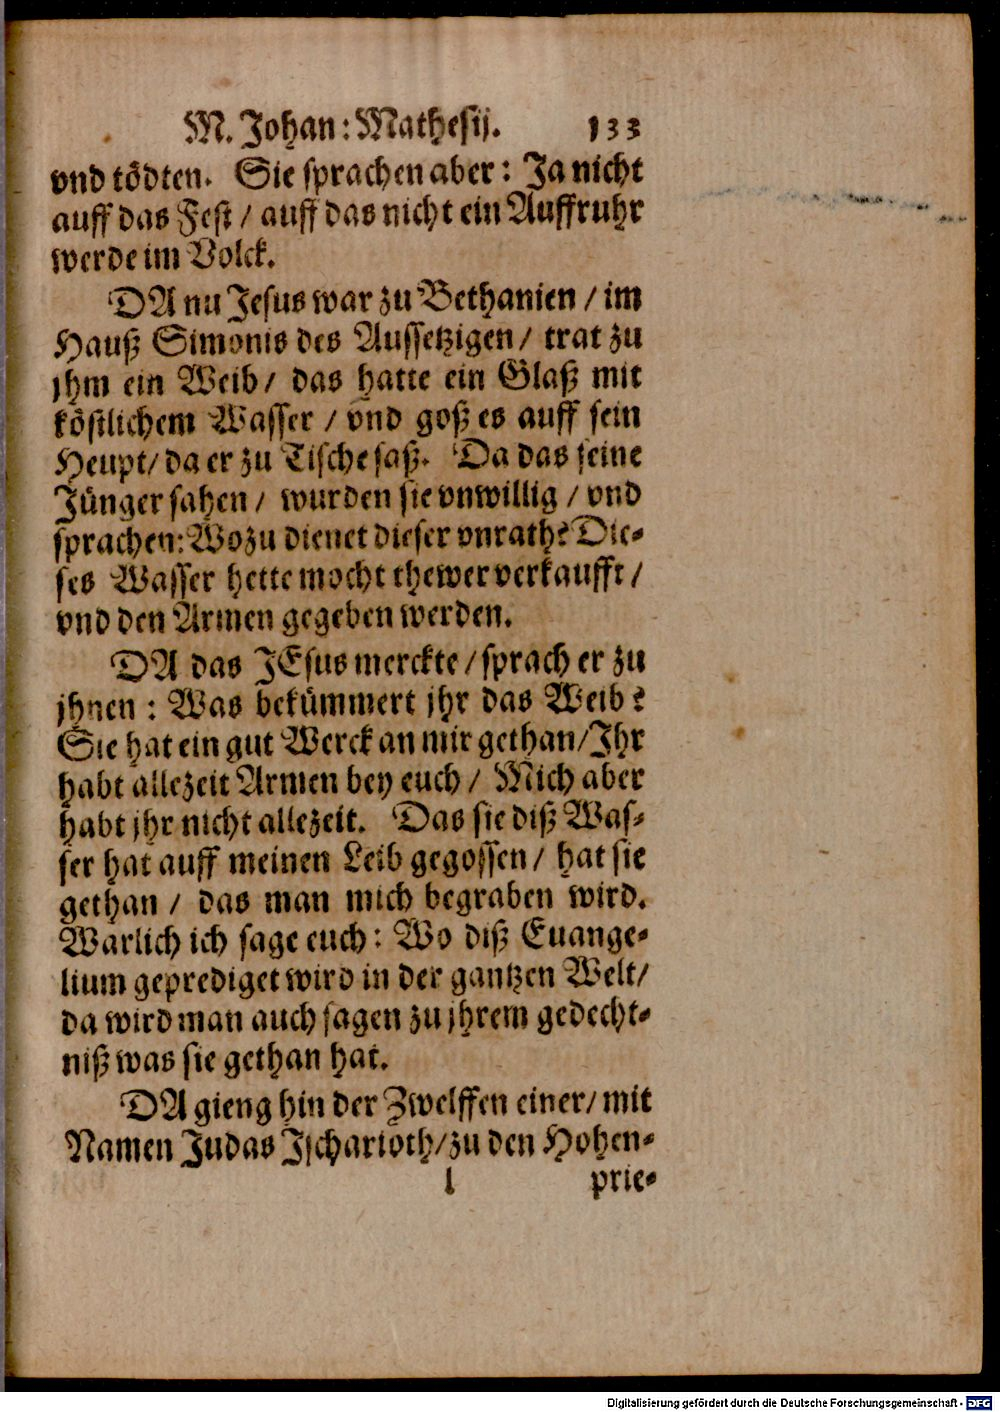 M. Johan: Mathesij. 133
vnd tödten. Sie sprachen aber: Ja nicht
auff das Fest / auff das nicht ein Auffruhr
werde im Volck.
DA nu Jesus war zu Bethanien / im
Hauß Simonis des Aussetzigen / trat zu
jhm ein Weib / das hatte ein Glaß mit
köstlichem Wasser / vnd goß es auff sein
Heupt / da er zu Tische saß. Da das seine
Jünger sahen / wurden sie vnwillig / vnd
sprachen: Wozu dienet dieser vnrath? Die-
ses Wasser hette mocht thewer verkaufft /
vnd den Armen gegeben werden.
DA das JEsus merckte / sprach er zu
jhnen : Was bekümmert jhr das Weib?
Sie hat ein gut Werck an mir gethan / Jhr
habt allezeit Armen bey euch / Mich aber
habt jhr nicht allezeit. Das sie diß Was-
ser hat auff meinen Leib gegossen / hat sie
gethan / das man mich begraben wird.
Warlich ich sage euch: Wo diß Euange-
lium geprediget wird in der gantzen Welt /
da wird man auch sagen zu jhrem gedecht-
niß was sie gethan hat.
DA gieng hin der Zwelffen einer / mit
Namen Judas Jscharioth / zu den Hohen-
l prie-
Digitalisierung gefördert durch die Deutsche Forschungsgemeinschaft - DFG